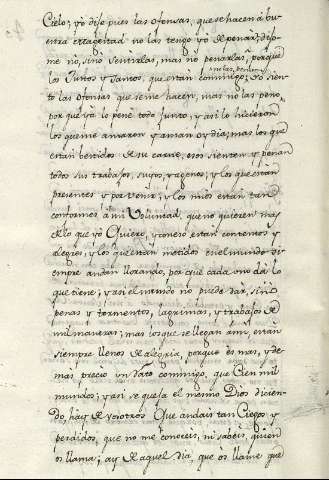 Cielo; yo dise pues las ofensas, que se hacen a bu
estra Magestad no las tengo yo de penar? dijo
me no, sino sentirlas, mas no penarlas, porque
los Justos y Santos, que estan conmigo; no sien
to las ofensas que se me hacen, mas no las peno,
porque ya lo pené todo junto, y asi lo hicieron
los que me amaron y aman oy dia; mas los que
estan bestidos de su carne, esos sienten y penan
todos sus trabajos, suyos, y agenos, y los que están
presentes y por venir; y los mios estan tan
conformes á mi Voluntad, que no quieren mas
de lo que yo Quiero, y con eso estan contentos y
alegres, y los que estan metidos en el mundo si
empre andan llorando, por que cada uno da lo
que tiene; y asi el mundo no puede dar, sino
penas y tormentos, lagrimas, y trabajos de
mil maneras; mas los que se llegan á mi, están
siempre llenos de alegria, porque es mas, y de
mas precio un dato conmigo, que Cien mil
mundos; y asi se queja el mesmo Dios dicien
do, hay de vosotros Que andais tan Ciegos y
perdidos, que no me conoceis, ni sabeis, quien
os llama; ay de aquel dia, que os llame que